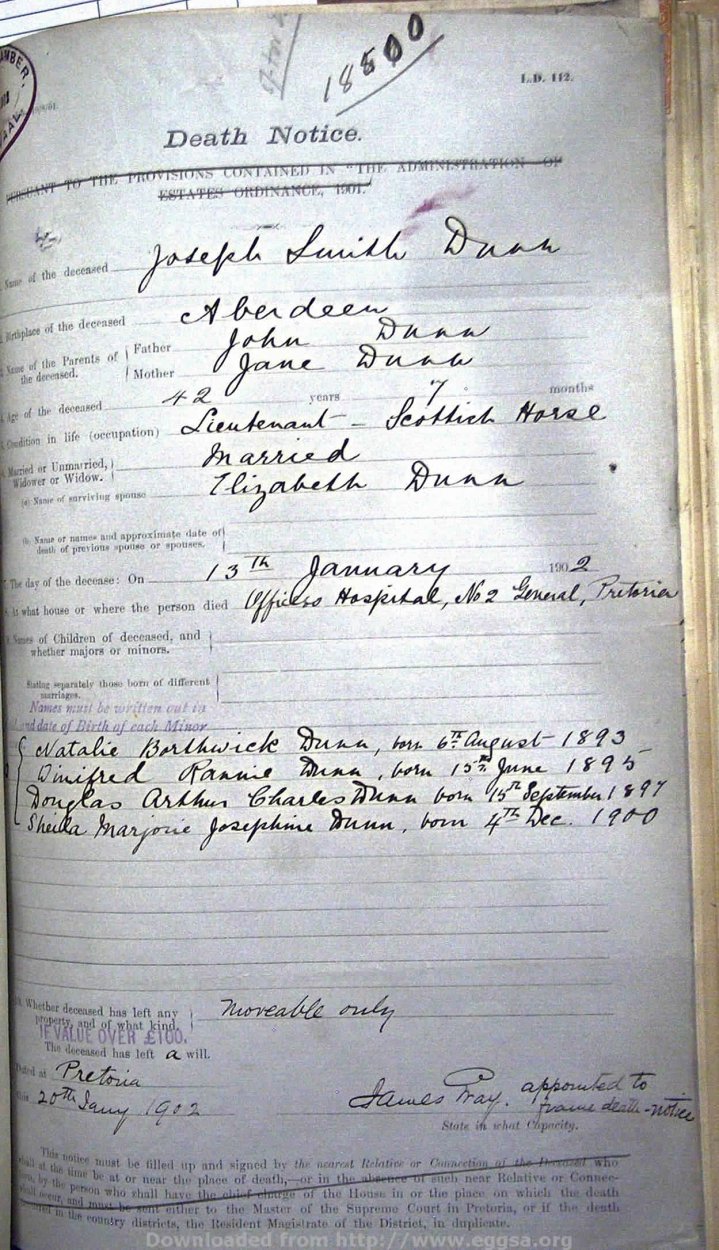 18800
L.D. 112.
Death Notice.
PURSUANT TO THE PROVISIONS CONTAINED IN "THE ADMINISTRATION OF
ESTATES ORDINANCE, 1901."
Name of the deceased Joseph Smith Dunn
Birthplace of the deceased Aberdeen
Name of the Parents of the deceased. Father John Dunn
Mother Jane Dunn
Age of the deceased 42 years 7 months
Condition in life (occupation) Lieutenant - Scottish Horse
Married or Unmarried, Widower or Widow. Married
(a) Name of surviving spouse Elizabeth Dunn
(b) Name or names and approximate date of
death of previous spouse or spouses.
7. The day of the decease: On 13th January 1902
8. At what house or where the person died Officers Hospital, No 2 General, Pretoria
Names of Children of deceased, and
whether majors or minors.
Stating separately those born of different
marriages.
Names must be written out in
full and date of Birth of each Minor
Natalie Borthwick Dunn, born 6th August 1893
Winifred Rannie Dunn, born 15th June 1895
Douglas Arthur Charles Dunn born 15th September 1897
Sheila Marjorie Josephine Dunn, born 4th Dec. 1900
Whether deceased has left any
property, and of what kind. Moveable only
IF VALUE OVER £100.
The deceased has left a will.
Dated at Pretoria
this 20th Jany 1902
James Gray. appointed to
frame death-notice
State in what Capacity.
This notice must be filled up and signed by the nearest Relative or Connection of the Deceased who
shall at the time be at or near the place of death,—or in the absence of such near Relative or Connec-
tion, by the person who shall have the chief charge of the House in or the place on which the death
shall occur, and must be sent either to the Master of the Supreme Court in Pretoria, or if the death
occurred in the country districts, the Resident Magistrate of the District, in duplicate.
Downloaded from http://www.eggsa.org